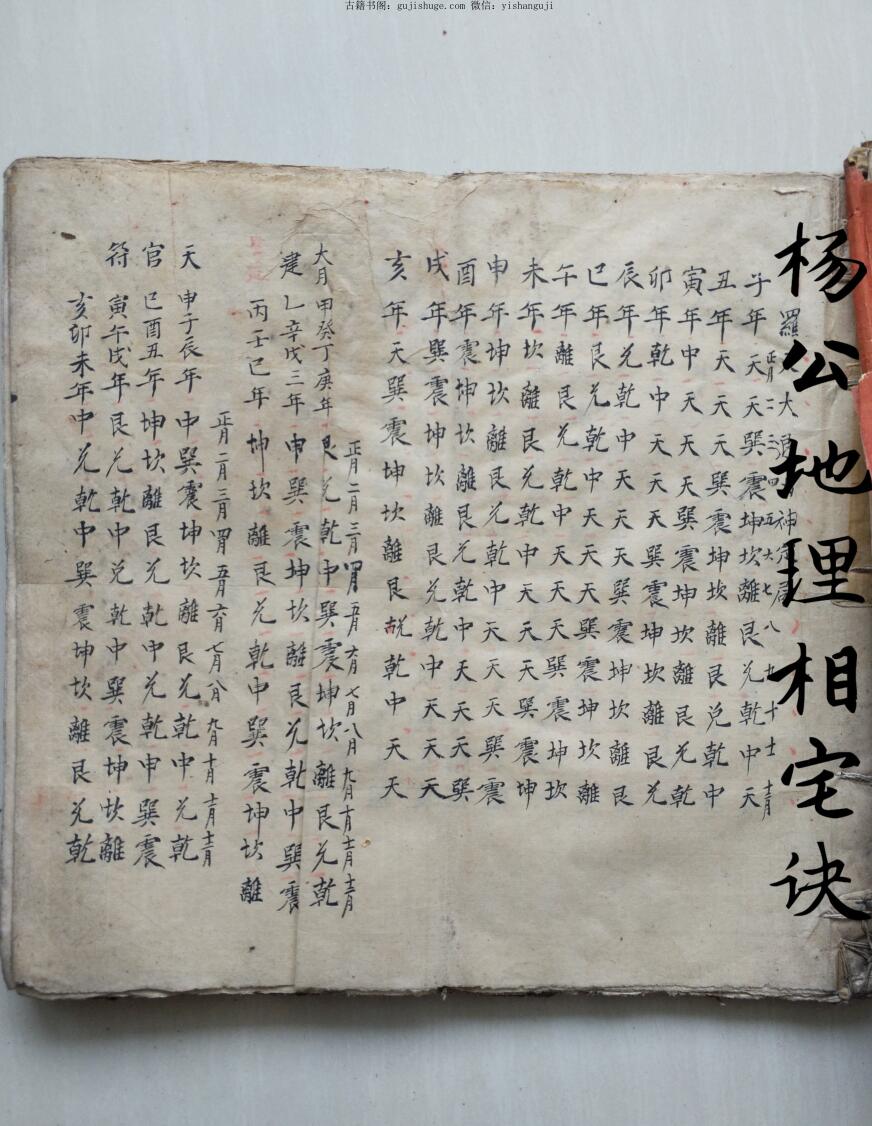 古籍书阁：gujishuge.com 微信：yishanguji
杨公地理相宅诀
羅大
子年天天巽震坤坎離艮兑乾中天
丑年天天天巽震坤坎離艮兑乾中
寅年中天天天巽震坤坎離艮兑乾
卯年乾中天天天巽震坤坎離艮兑
辰年兑乾中天天天巽震坤坎離艮
巳年艮兑乾中天天天巽震坤坎離
午年離艮兑乾中天天天巽震坤坎
未年坎離艮兑乾中天天天巽震坤
申年坤坎離艮兑乾中天天天巽震
酉年震坤坎離艮兑乾中天天天巽
戌年巽震坤坎離艮兑乾中天天天
亥年天巽震坤坎離艮兑乾中天天
正月二月三月四月五月六月七月八月九月十月十一月十二月
大月甲癸丁庚年艮兑乾中巽震坤坎離艮兑乾
建乙辛戊三年中巽震坤坎離艮兑乾中巽震
丙壬巳年坤坎離艮兑乾中巽震坤坎離
正月二月三月四月五月六月七月八月九月十月十一月十二月
天申子辰年中巽震坤坎離艮兑乾中兑乾
官巳酉丑年坤坎離艮兑乾中兑乾中巽震
符寅午戌年艮兑乾中兑乾中巽震坤坎離
亥卯未年中兑乾中巽震坤坎離艮兑乾